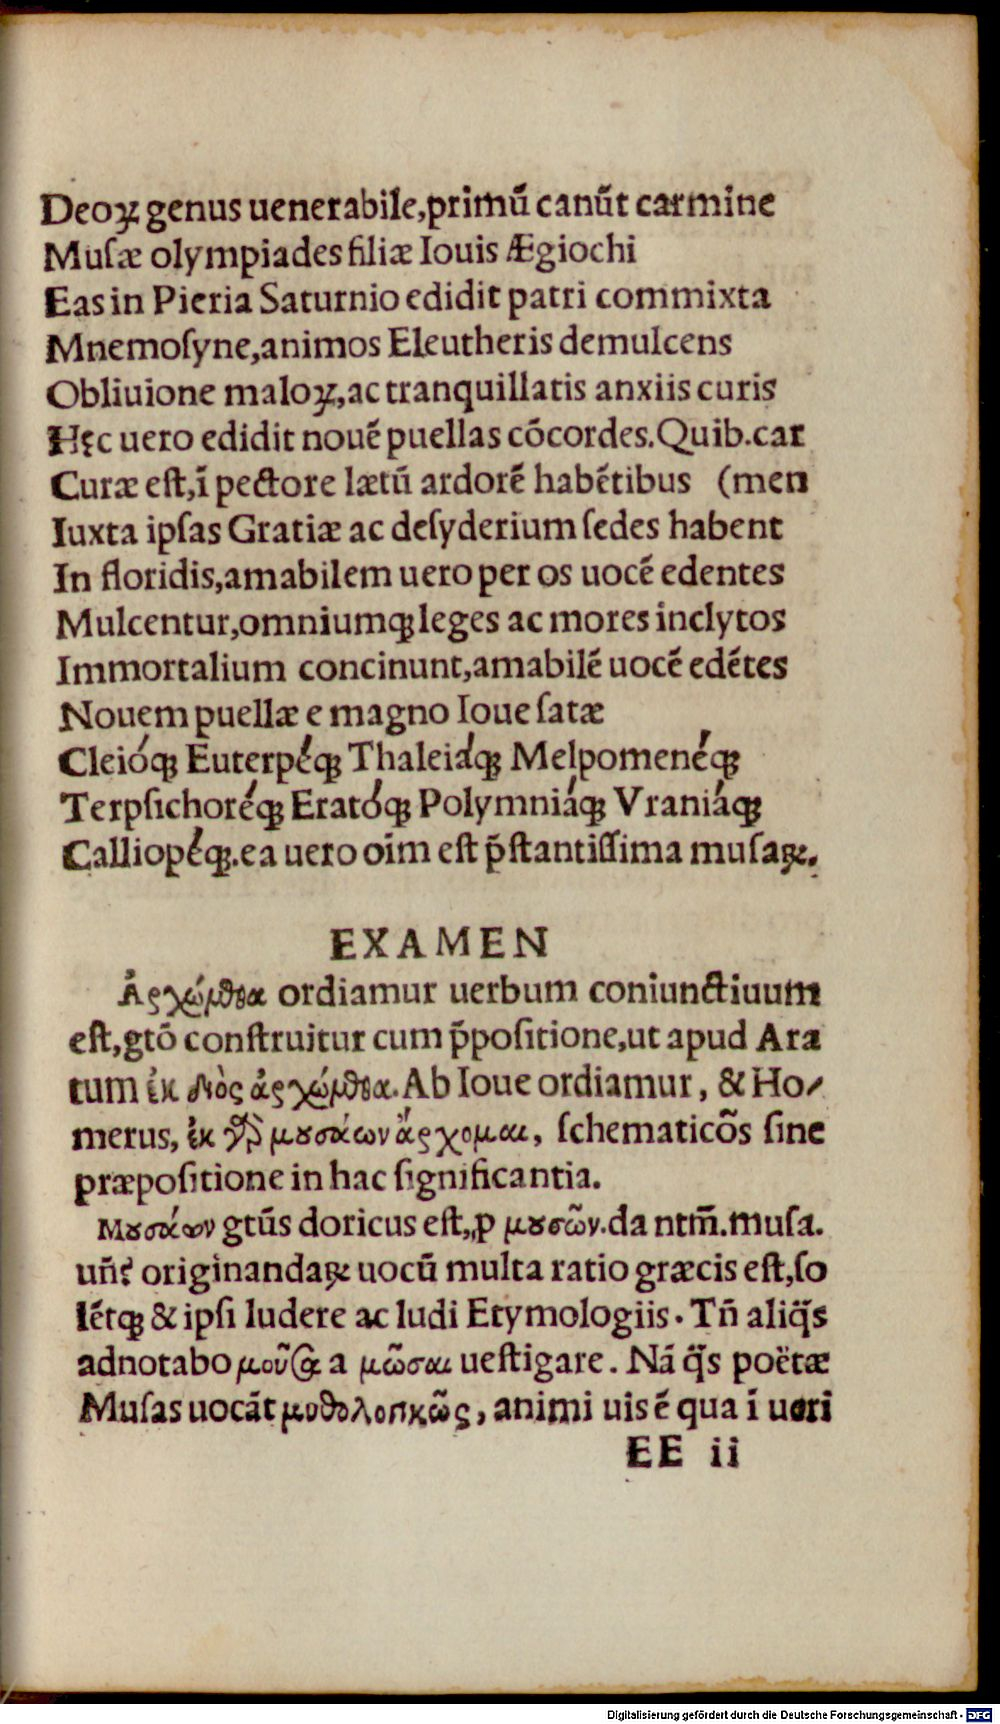 Deoꝝ genus uenerabile,primũ canũt carmine
Muſæ olympiades filiæ Iouis Ægiochi
Eas in Pieria Saturnio edidit patri commixta
Mnemoſyne,animos Eleutheris demulcens
Obliuione maloꝝ,ac tranquillatis anxiis curis
Hęc uero edidit nouẽ puellas cõcordes.Quib.car
Curæ eſt,ĩ pectore lætũ ardorẽ habẽtibus (men
Iuxta ipſas Gratiæ ac deſyderium ſedes habent
In floridis,amabilem uero per os uocẽ edentes
Mulcentur,omniumqꝫ leges ac mores inclytos
Immortalium concinunt,amabilẽ uocẽ edẽtes
Nouem puellæ e magno Ioue ſatæ
Cleióqꝫ Euterpéqꝫ Thaleiáqꝫ Melpomenéqꝫ
Terpſichoréqꝫ Eratóqꝫ Polymniáqꝫ Vraniáqꝫ
Calliopéqꝫ.ea uero oĩm eſt p̃ſtantiſſima muſaꝝ.
EXAMEN
Ἀρχώμεθα ordiamur uerbum coniunctiuum
eſt,gtõ conſtruitur cum p̃poſitione,ut apud Ara
tum ἐκ διὸς ἀρχώμεθα.Ab Ioue ordiamur, & Ho⸗
merus, ἐκ μουσάων ἄρχομαι, ſchematicõs ſine
præpoſitione in hac ſignificantia.
Μουσάων gtũs doricus eſt,ꝓ μουσῶν.da ntm̃.muſa.
uñ? originandaꝝ uocũ multa ratio græcis eſt,ſo
lẽtqꝫ & ipſi ludere ac ludi Etymologiis. Tñ aliq̃s
adnotabo μοῦσαι a μῶσαι ueſtigare. Nã q̃s poëtæ
Muſas uocãt μυθολογικῶς, animi uis ẽ qua ĩ ueri
EE ii
Digitalisierung gefördert durch die Deutsche Forschungsgemeinschaft - DFG